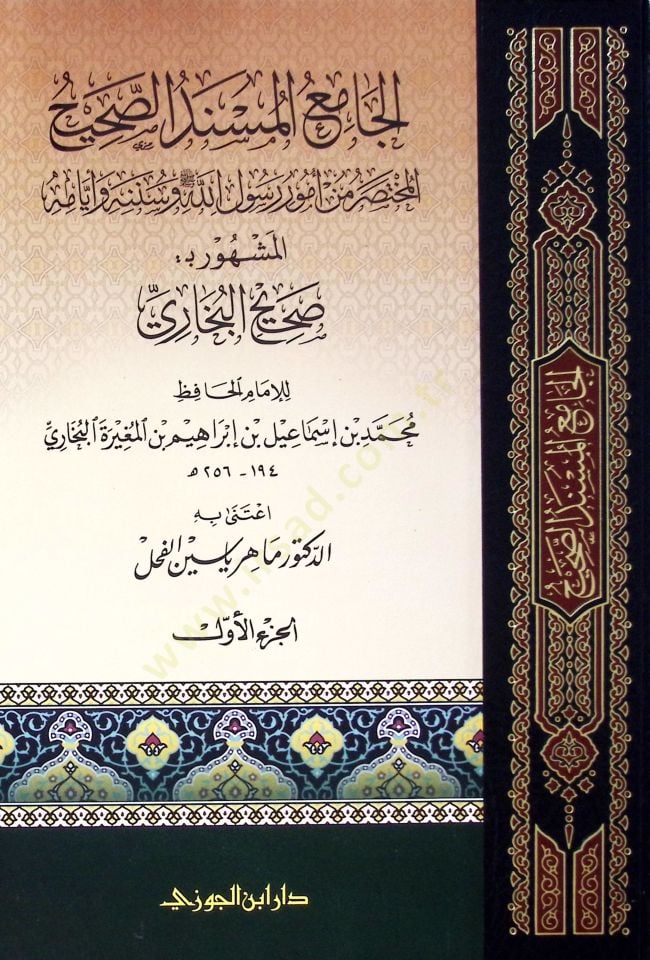 الجَامِعُ المُسْنَدُ الصَّحِيحُ
المُخْتَصَرُ مِنْ أُمُورِ رَسُولِ اللهِ ﷺ وَسُنَنِهِ وَأَيَّامِهِ
المَشْهُورُ بـ:
صَحِيحِ البُخَارِيِّ
لِلإِمَامِ الحَافِظِ
مُحَمَّدِ بْنِ إِسْمَاعِيلَ بْنِ إِبْرَاهِيمَ بْنِ المُغِيرَةِ البُخَارِيِّ
١٩٤ - ٢٥٦ هـ
اعْتَنَى بِهِ
الدكتور ماهر ياسين الفحل
الجزء الأوّل
دار ابن الجوزي
الجامع المسند الصحيح